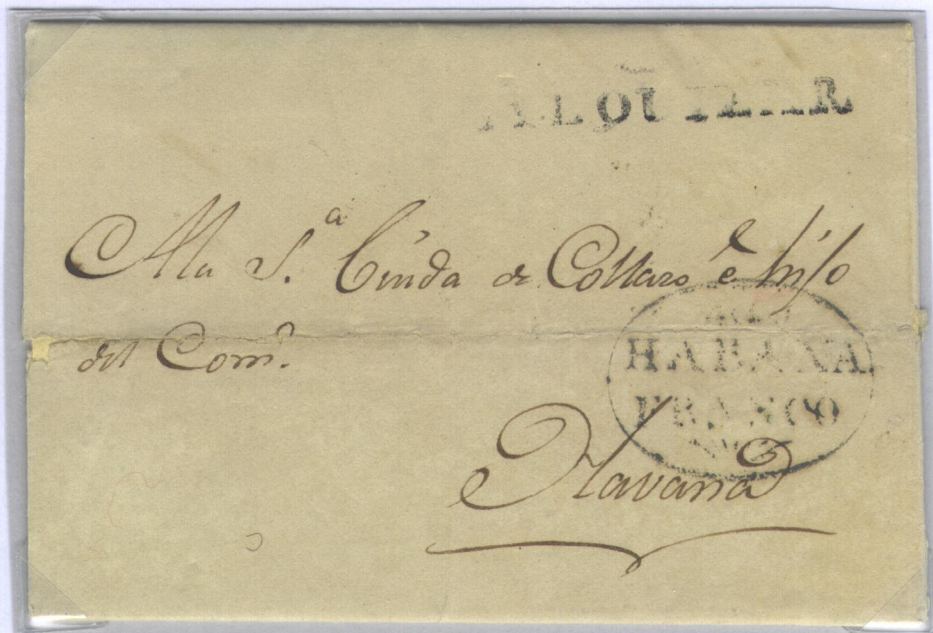 ALQUIZAR
A la S.ª Viuda de Collazo é hijo
del Com.º
HABANA
FRANCO
Havana